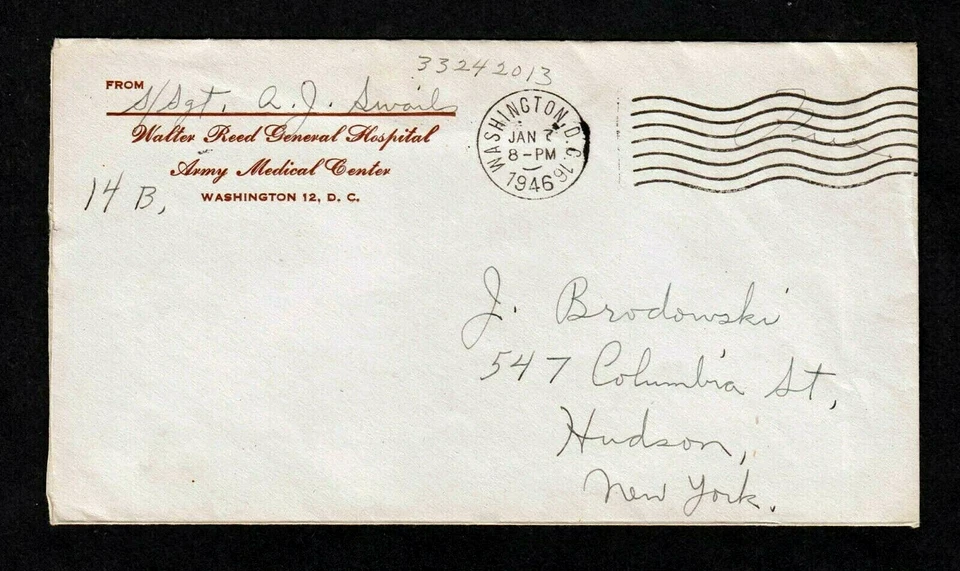 33242013
FROM S/Sgt. A. J. Swails
Walter Reed General Hospital
Army Medical Center
14 B,
WASHINGTON 12, D. C.
WASHINGTON, D.C. 16
JAN 7
8-PM
1946
Free
J. Brodowski
547 Columbia St,
Hudson,
New York.